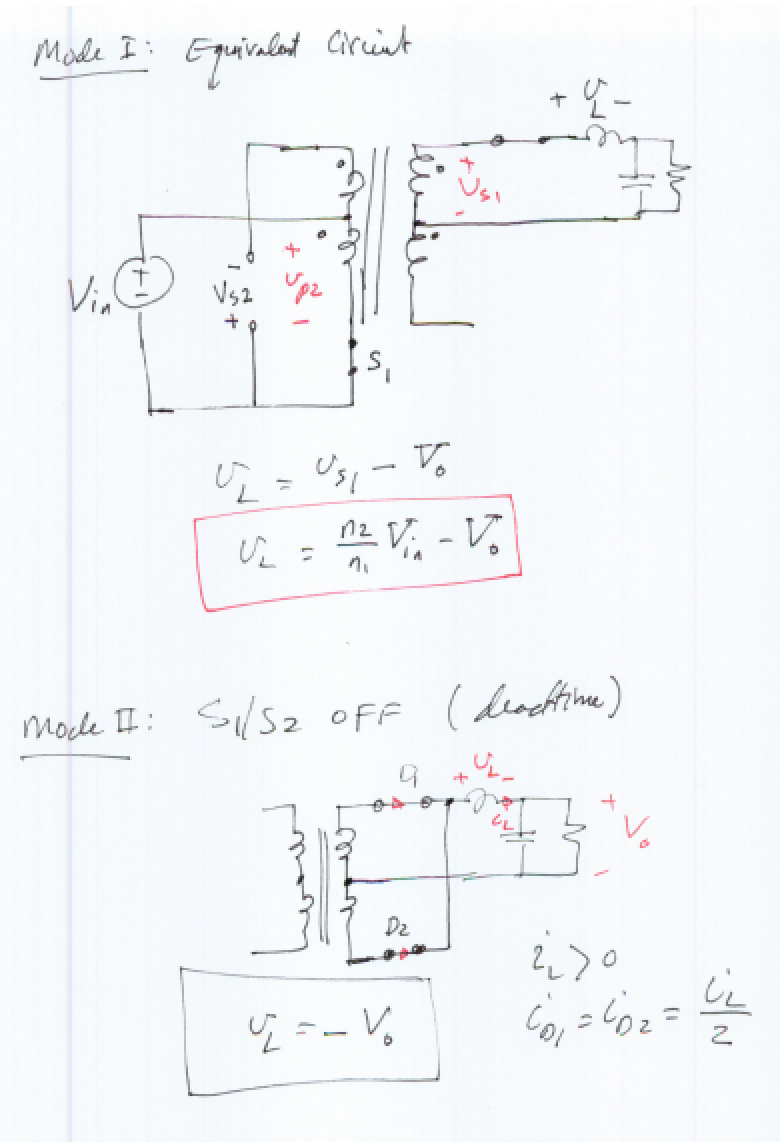 Mode I: Equivalent Circuit
+ v_L -
+
v_s1
-
V_in
+
-
-
V_s2
+
+
v_p2
-
S_1
v_L = v_s1 - V_o
v_L = n_2/n_1 V_in - V_o
Mode II: S_1/S_2 OFF (deadtime)
+ v_L -
i_L
+
V_o
-
D2
i_L > 0
v_L = - V_o
i_D1 = i_D2 = i_L/2